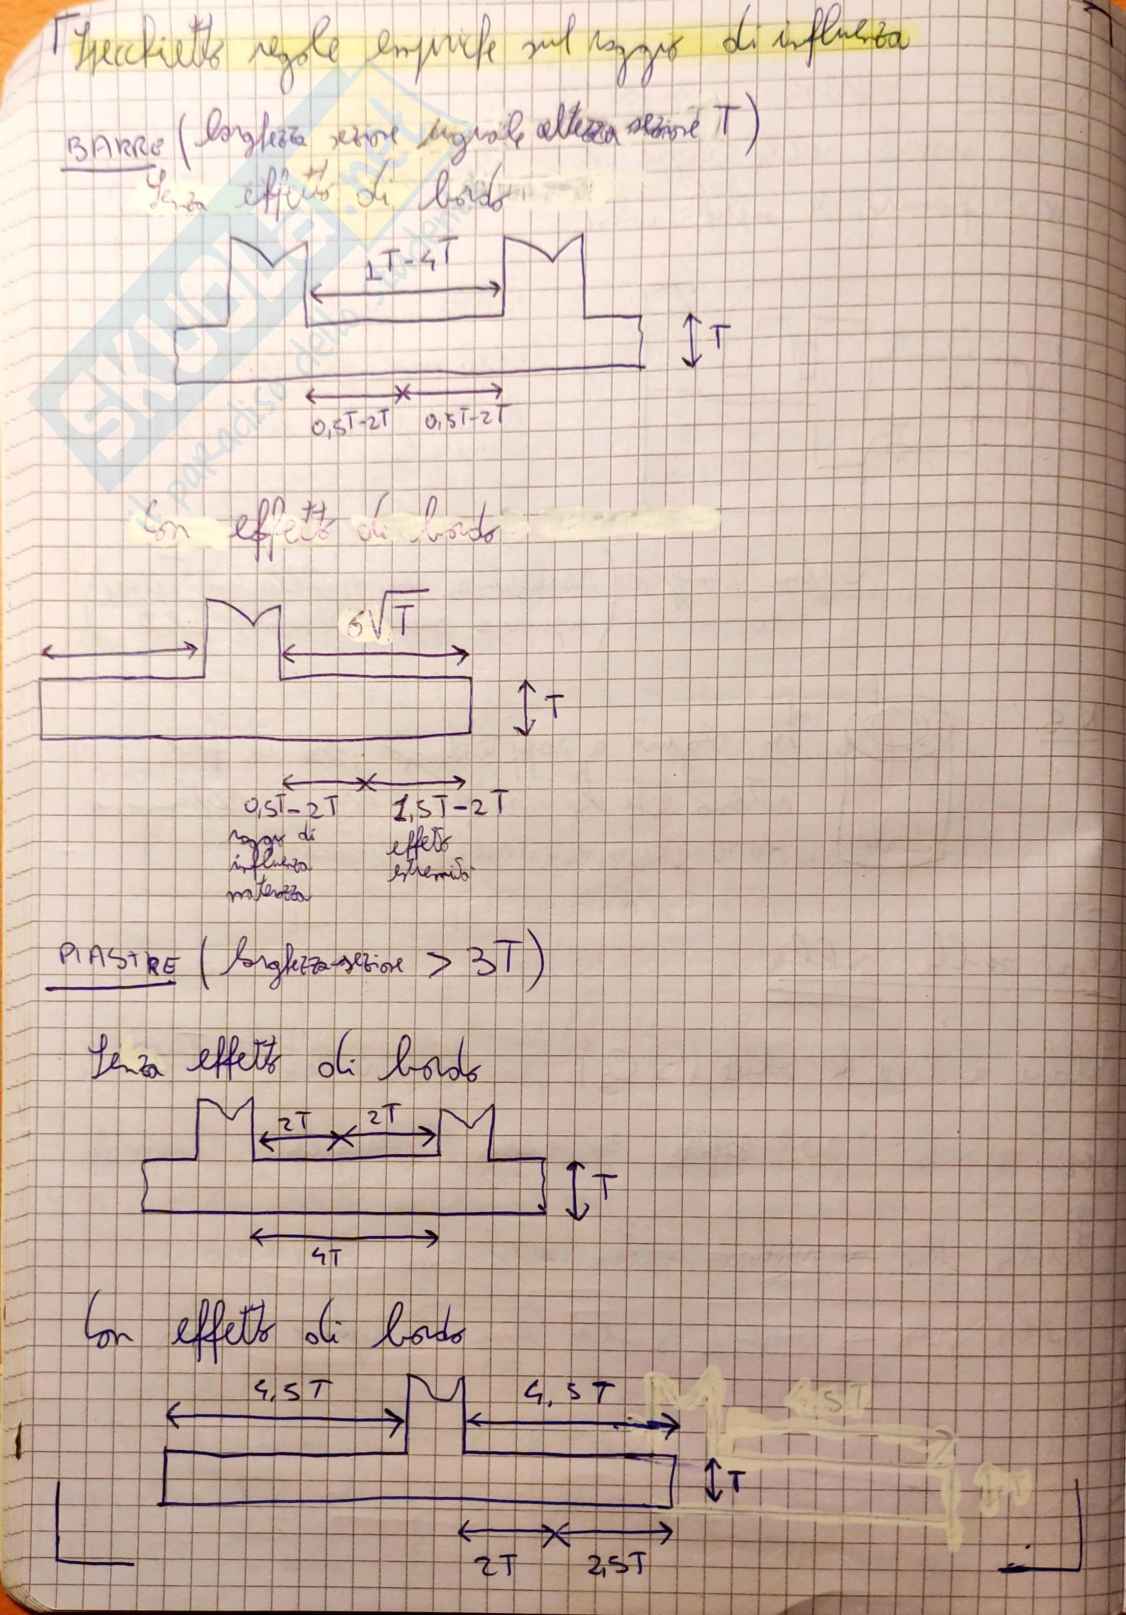 Specchietto regole empiriche sul raggio di influenza
BARRE (larghezza sezione uguale altezza sezione T)
Senza effetto di bordo
1T-4T
T
0,5T-2T 0,5T-2T
Con effetto di bordo
6√T
T
0,5T-2T 1,5T-2T
raggio di effetto
influenza estremità
materozza
PIASTRE (larghezza sezione > 3T)
Senza effetto di bordo
2T 2T
T
4T
Con effetto di bordo
4,5T 4,5T
T
2T 2,5T
SKUOLA.net
il paradiso dello studente